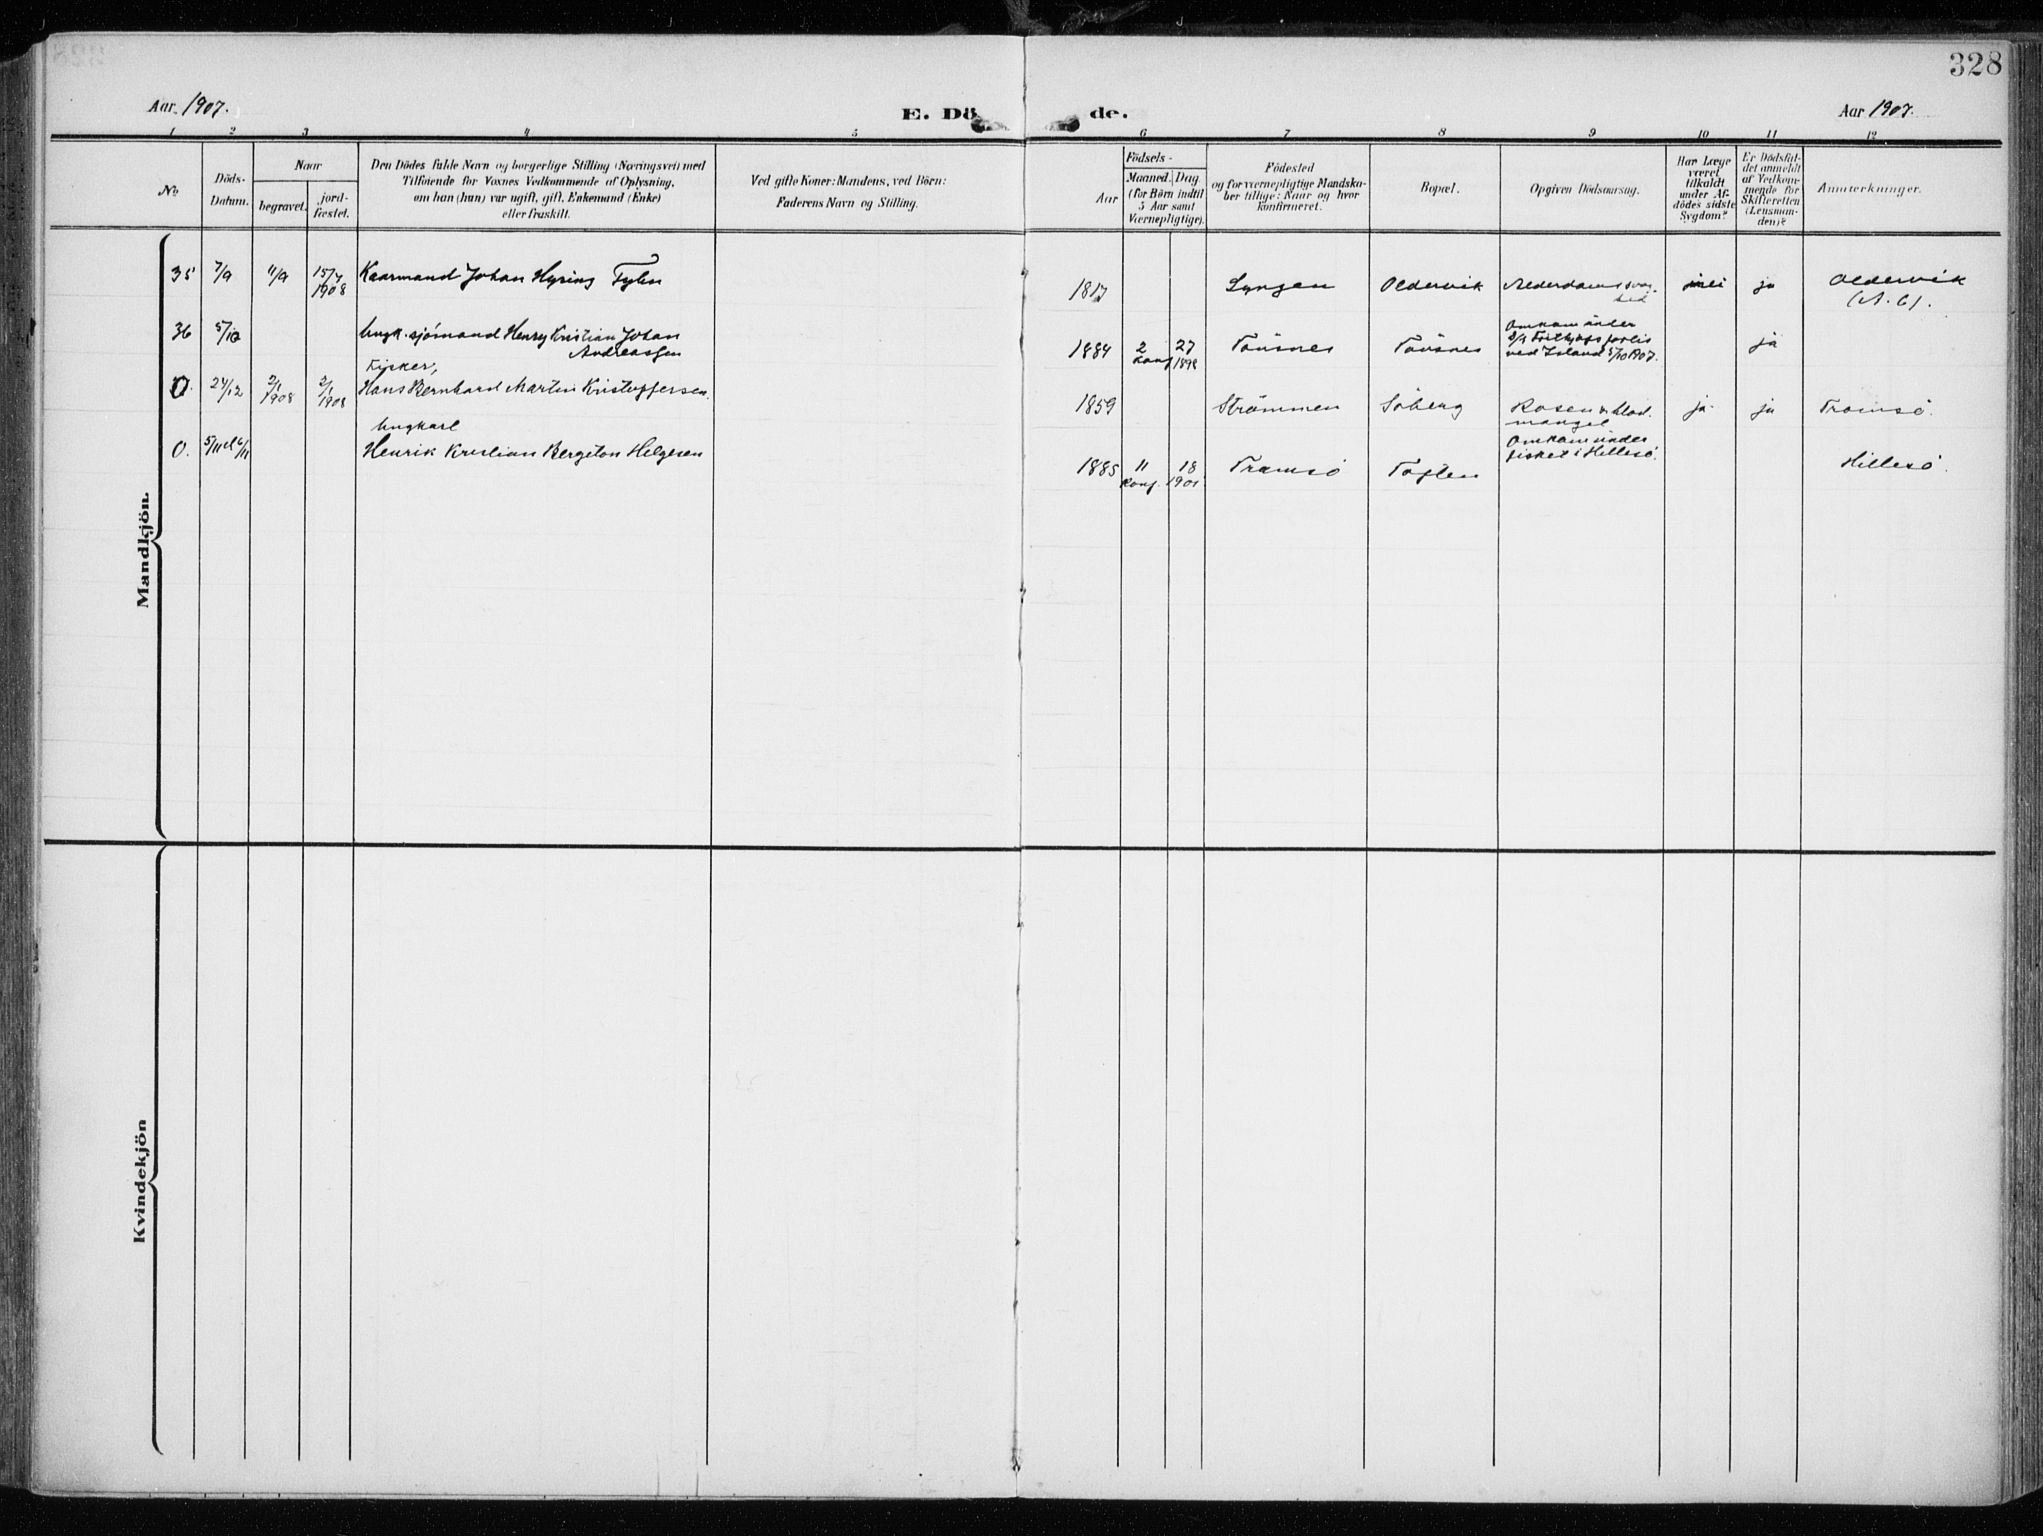 328
Aar 1907.
E. Dö
de.
Aar 1907.
1 2 3 4 5 6 7 8 9 10 11 12
No
Döds-
Datum.
Naar
begravet.
jord-
fæstet.
Den Dödes fulde Navn og borgerlige Stilling (Næringsvei) med
Tilföiende for Voxnes Vedkommende af Oplysning,
om han (hun) var ugift, gift, Enkemand (Enke)
eller fraskilt.
Ved gifte Koner: Mandens, ved Börn:
Faderens Navn og Stilling.
Aar
Födsels-
Maaned. Dag
(for Börn indtil
5 Aar samt
Værnepligtige).
Födested
og for værnepligtige Mandska-
ber tillige: Naar og hvor
konfirmeret.
Bopæl.
Opgiven Dödsaarsag.
Har Læge
været
tilkaldt
under Af-
dödes sidste
Sygdom?
Er Dödsfal-
det anmeldt
af Vedkom-
mende for
Skifteretten
(Lensman-
den)?
Anmærkninger.
Mandkjön.
35 7/9 11/9 15/7 1908 Kaarmand Johan Hyring
1817 Lyngen Oldervik Alderdomssvag-
hed nei ja Oldervik
36 5/10 Ungk. sjömand Henry Kristian Johan
Andreassen
1884 2 27 Tönsnes Tönsnes Omkom under
forlis
ved Island 5/10 1907. ja
Konf 1898
Fisker,
0. 24/12 2/1 1908 2/1 1908 Hans Bernhard Martin Kristoffersen.
1859 Strömmen Söberg Rosen & blod-
mangel ja ja Tromsö.
Ungkarl
0. 5/11 el 6/11 Henrik Kristian Bergeton Helgesen
1885 11 18 Tromsö Toften Omkom under
fisket i Hillesö. Hillesö.
Konf. 1901
Kvindekjön